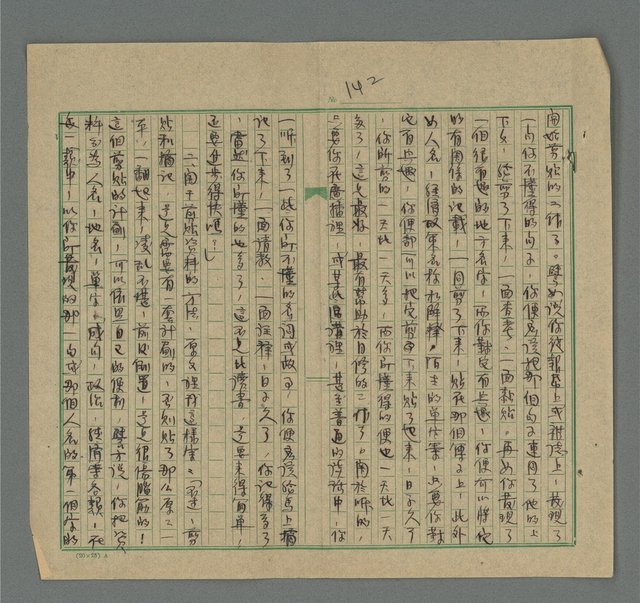 No 142
開始剪貼的工作了。譬如說你從報章上或雜誌上，發現了
一句你不懂得的句子，你便應該把那個句子連同了他的上
下文，給剪了下來，一面查考，一面黏貼。再如你發現了
一個很有趣的地方名字，而你對它有上趣，你便可以將它
的有關係的記載，一同剪了下來，貼在那個便子上，此外
如人名，經濟政策名稱和解釋，陌生的單字等，只要你對
它有上趣，你便都可以把它剪下來貼了起來，日子久了
，你所剪的一天比一天多，而你所懂得的便也一天比一天
多了，這是最好，最有幫助於自修的工作了。關於聽的，
只要你在廣播裡，或某長官講裡，甚至普通的談話中，你
一聽到了一些你所不懂的名詞或故事，你便應該給馬上摘
記了下來，一面請教，一面註釋，日子久了，你記得多了
，當然你所懂的也多了，這不是比讀書，還要來得簡單，
還要進步得快嗎？」
二、關于剪貼資料的方法，原文裡有這樣寫：「不過，剪
貼和摘記，還是需要有一套計劃的，否則貼了那么厚一
本，一翻起來，凌乱不堪，前后倒置，這是很傷腦筋的！
這個剪貼的計劃，可以依照自己的便利，譬方說，你把資
料分為人名，地名，單字，成句，政治，經濟等各類，在
每一類中，以你所發現的那一句或那個人名的第一個字的
(20×25) A